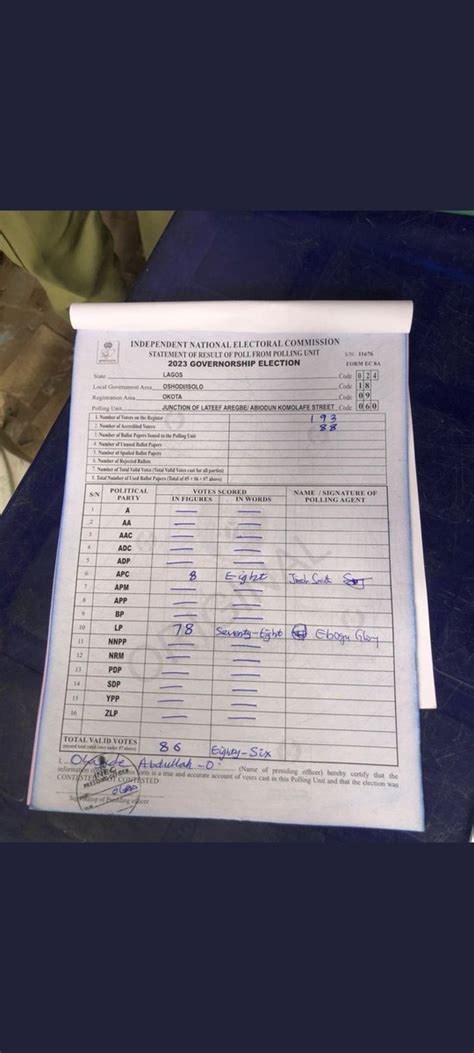 INDEPENDENT NATIONAL ELECTORAL COMMISSION
STATEMENT OF RESULT OF POLL FROM POLLING UNIT S/N: 11676
2023 GOVERNORSHIP ELECTION FORM EC 8A
State LAGOS Code 0 2 4
Local Government Area OSHODI/ISOLO Code 1 8
Registration Area OKOTA Code 0 9
Polling Unit JUNCTION OF LATEEF AREGBE/ ABIODUN KOMOLAFE STREET Code 0 6 0
1. Number of Voters on the Register 193
2. Number of Accredited Voters 88
3. Number of Ballot Papers Issued to the Polling Unit
4. Number of Unused Ballot Papers
5. Number of Spoiled Ballot Papers
6. Number of Rejected Ballots
7. Number of Total Valid Votes (Total Valid Votes cast for all parties)
8. Total Number of Used Ballot Papers (Total of #5 + #6 + #7 above)
S/N POLITICAL PARTY VOTES SCORED NAME / SIGNATURE OF POLLING AGENT
IN FIGURES IN WORDS
1 A — —
2 AA — —
3 AAC — —
4 ADC — —
5 ADP — —
6 APC 8 Eight
7 APM — —
8 APP — —
9 BP — —
10 LP 78 Seventy-Eight Ebogu Glory
11 NNPP — —
12 NRM — —
13 PDP — —
14 SDP — —
15 YPP — —
16 ZLP — —
ORIGINAL
TOTAL VALID VOTES 86 Eighty-Six
(record total valid votes under #7 above)
I, Abdullah - O. (Name of presiding officer) hereby certify that the
information is a true and accurate account of votes cast in this Polling Unit and that the election was
CONTESTED / CONTESTED
Signature of Presiding officer
INEC